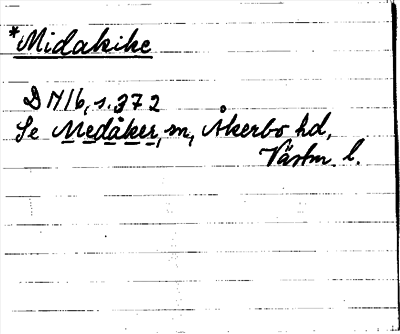 *Midakike
DN 1b, s. 372
Se Medåker, sn, Åkerbo hd,
Västm. l.